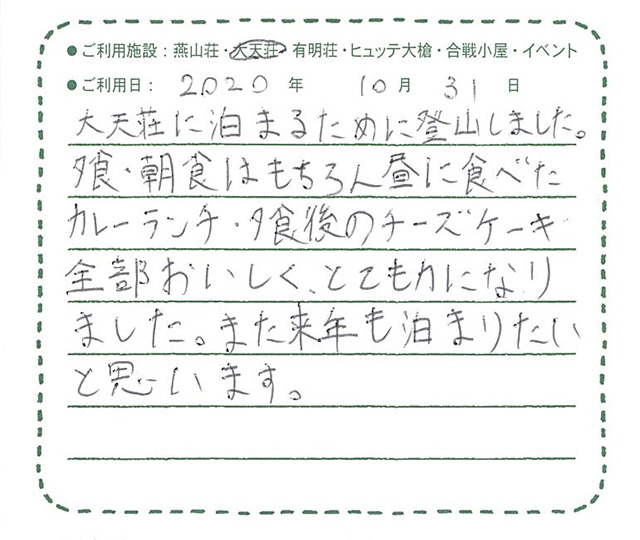 ●ご利用施設：燕山荘・大天荘・有明荘・ヒュッテ大槍・合戦小屋・イベント
●ご利用日： 2020 年 10 月 31 日
大天荘に泊まるために登山しました。
夕食・朝食はもちろん昼に食べた
カレーランチ・夕食後のチーズケーキ
全部おいしく、とても力になり
ました。また来年も泊まりたい
と思います。